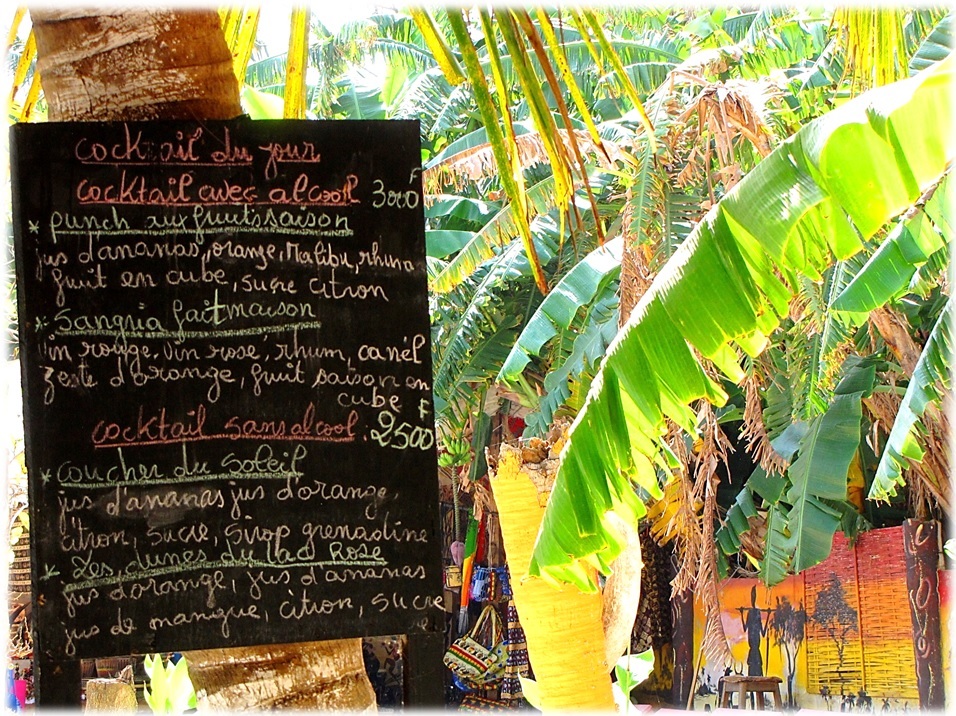 cocktail du jour
cocktail avec alcool 3000 F
* punch aux fruits saison
jus d'ananas, orange, Malibu, rhum
fruit en cube, sucre citron
* Sangria fait maison
Vin rouge, Vin rosé, rhum, canél
Zeste d'orange, fruit saison en
cube
cocktail sans alcool 2500 F
* coucher du soleil
jus d'ananas jus d'orange,
citron, sucre, sirop grenadine
* Les dunes du Lac Rose
jus d'orange, jus d'ananas
jus de mangue, citron, sucre